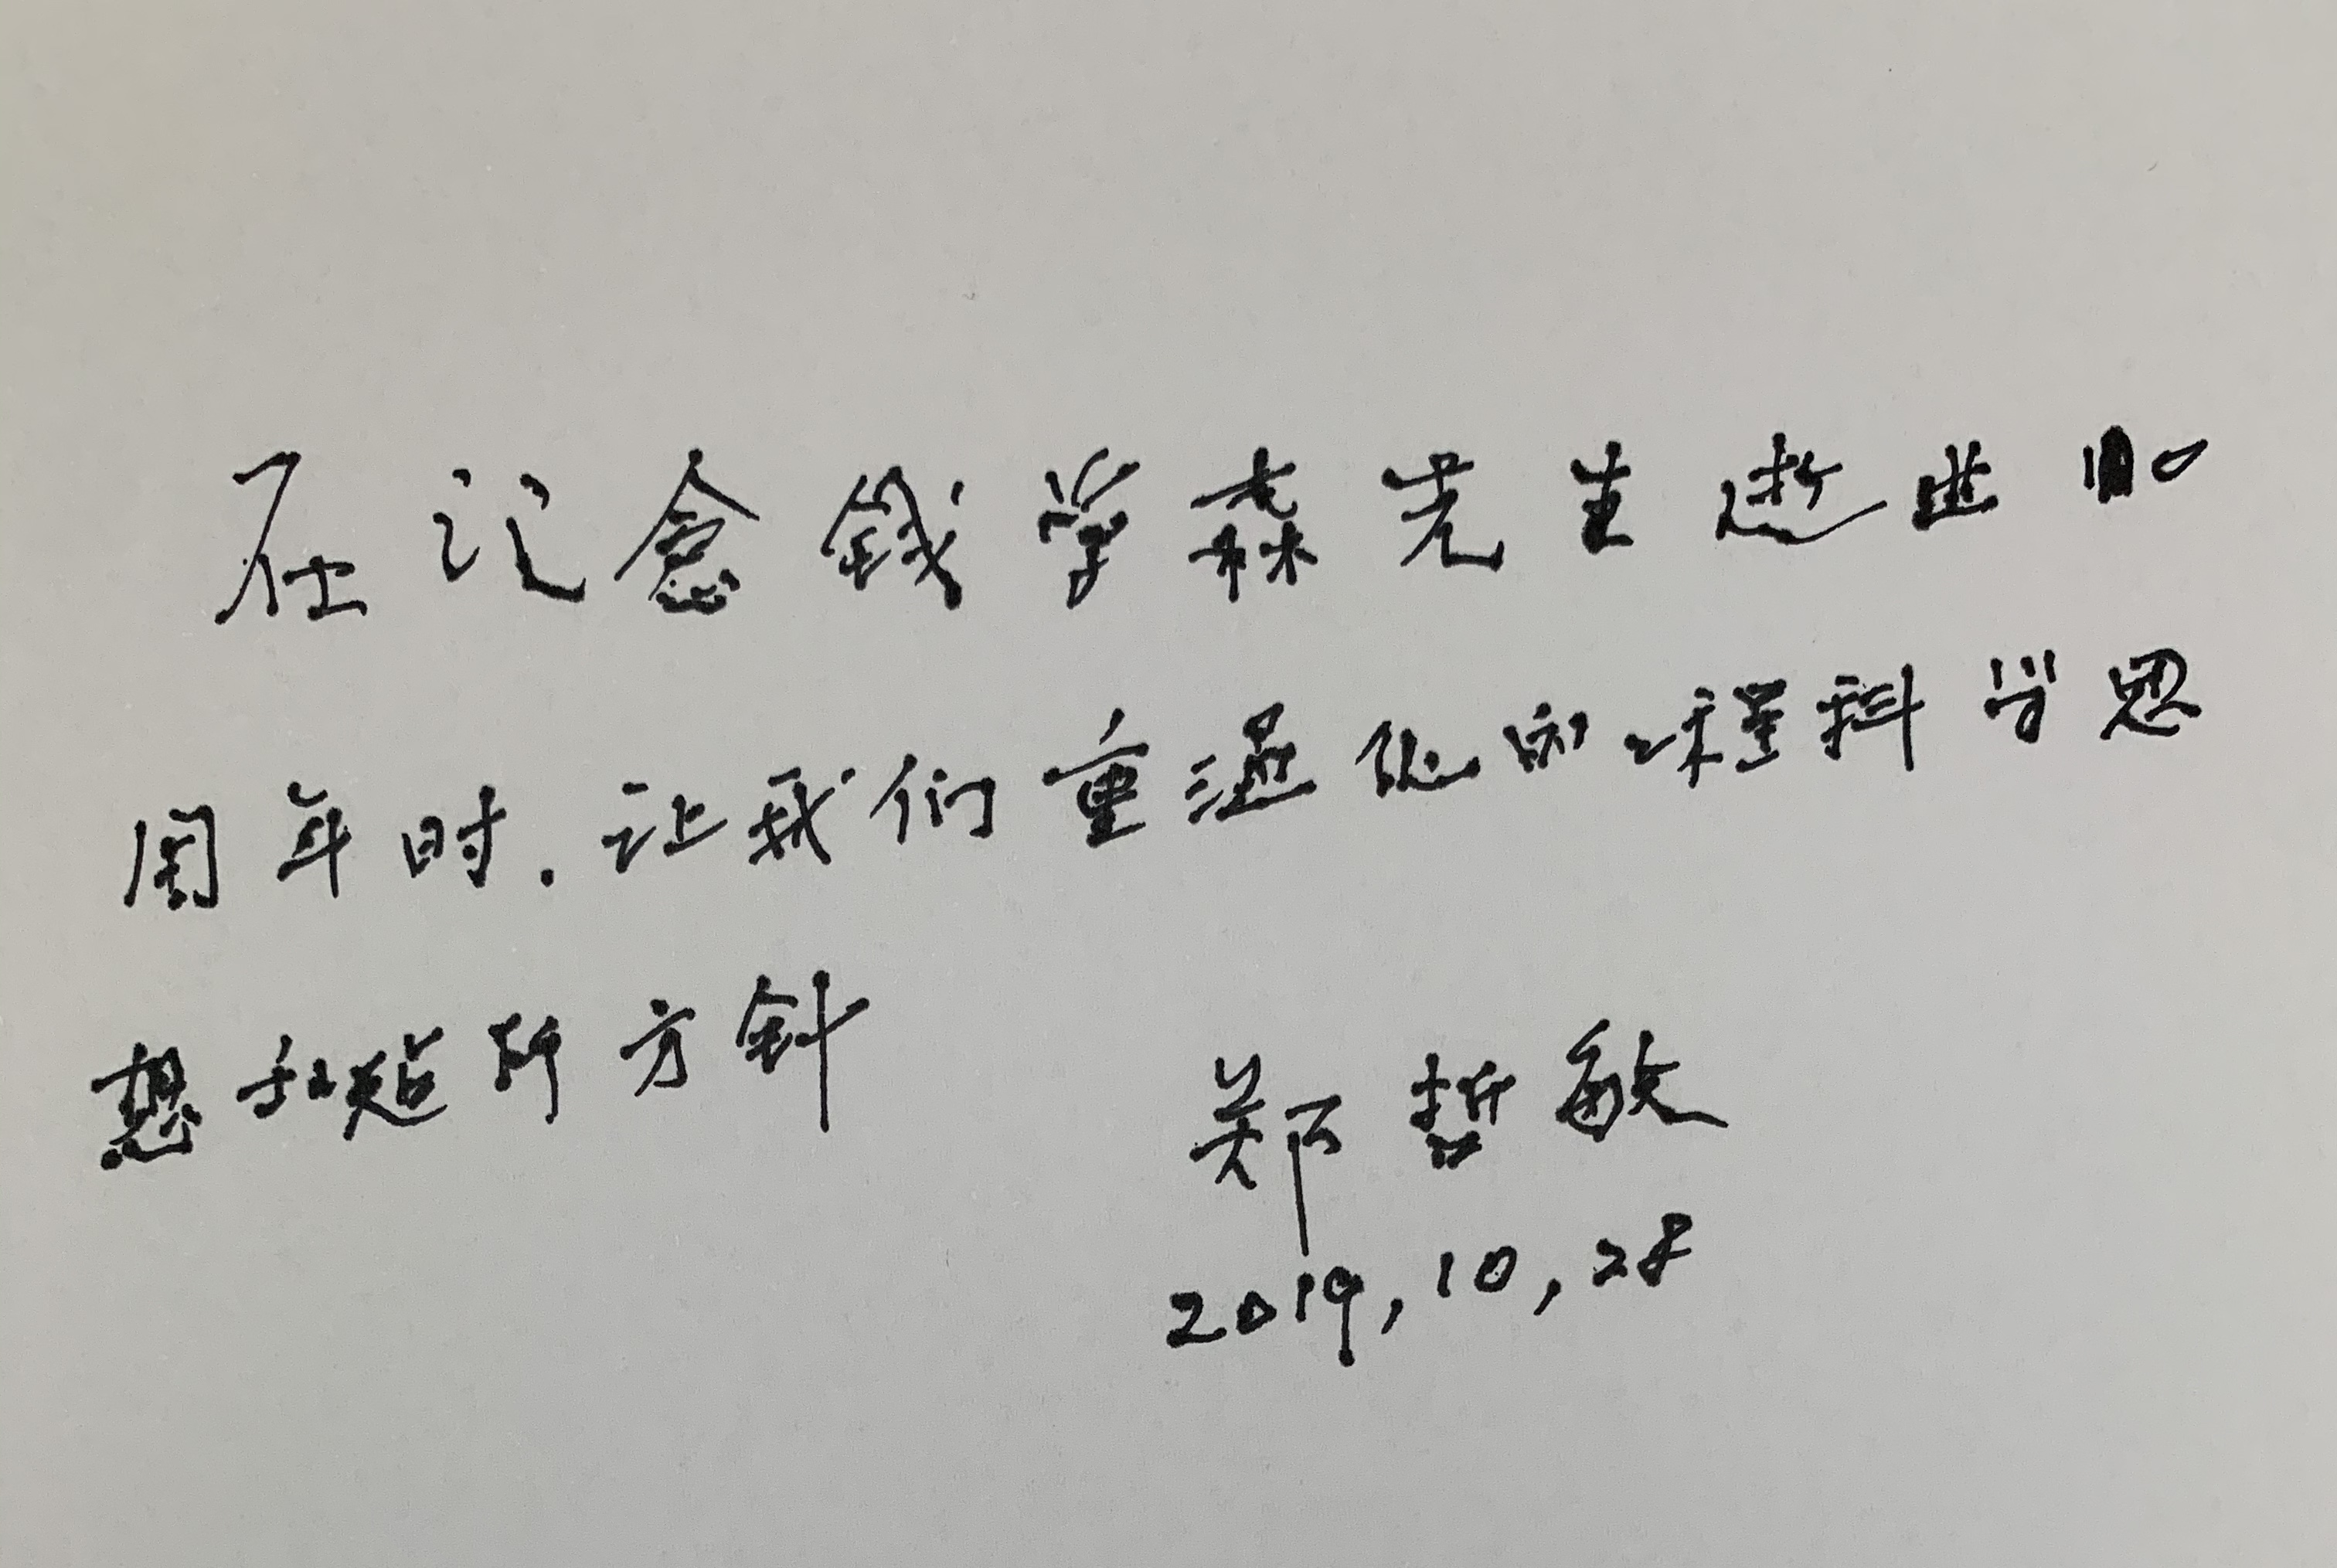 在记念钱学森先生逝世10
周年时.让我们重温他的工程科学思
想和建所方针
郑哲敏
2019,10,28